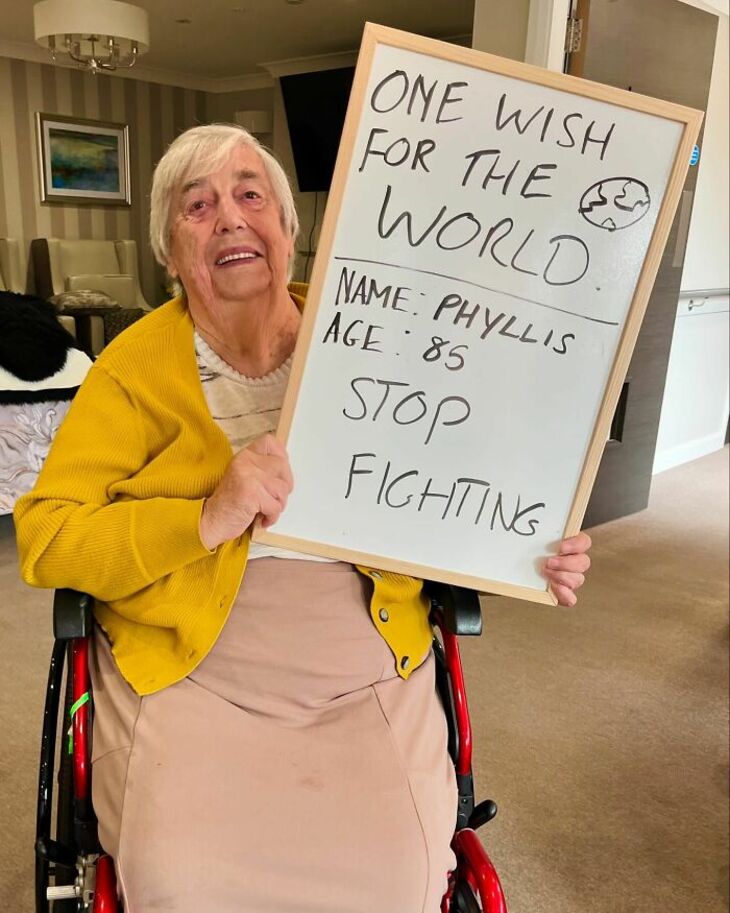 ONE WISH
FOR THE
WORLD.
NAME: PHYLLIS
AGE: 85
STOP
FIGHTING